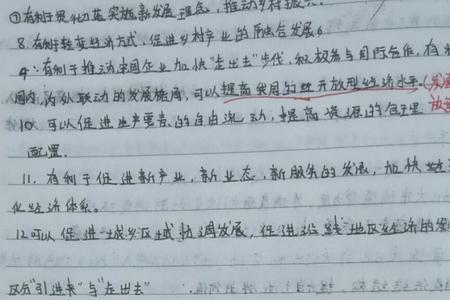 ①有利于更好落实新发展理念，推动乡村振兴。
8.有利于转变经济方式，促进乡村产业的融合发展。
9.有利于推动中国企业加快"走出去"步伐，积极参与国际合作，
内，为外联动的发展格局，可以提高我国的开放型经济水平。(发展
10.可以促进生产要素的自由流动，提高资源的合理 放
配置。
11.有利于促进新产业，新业态，新服务的发展，加快
化经济体系。
12可以促进城乡区域协调发展，促进沿线地区经济的发
区分"引进来"与"走出去"